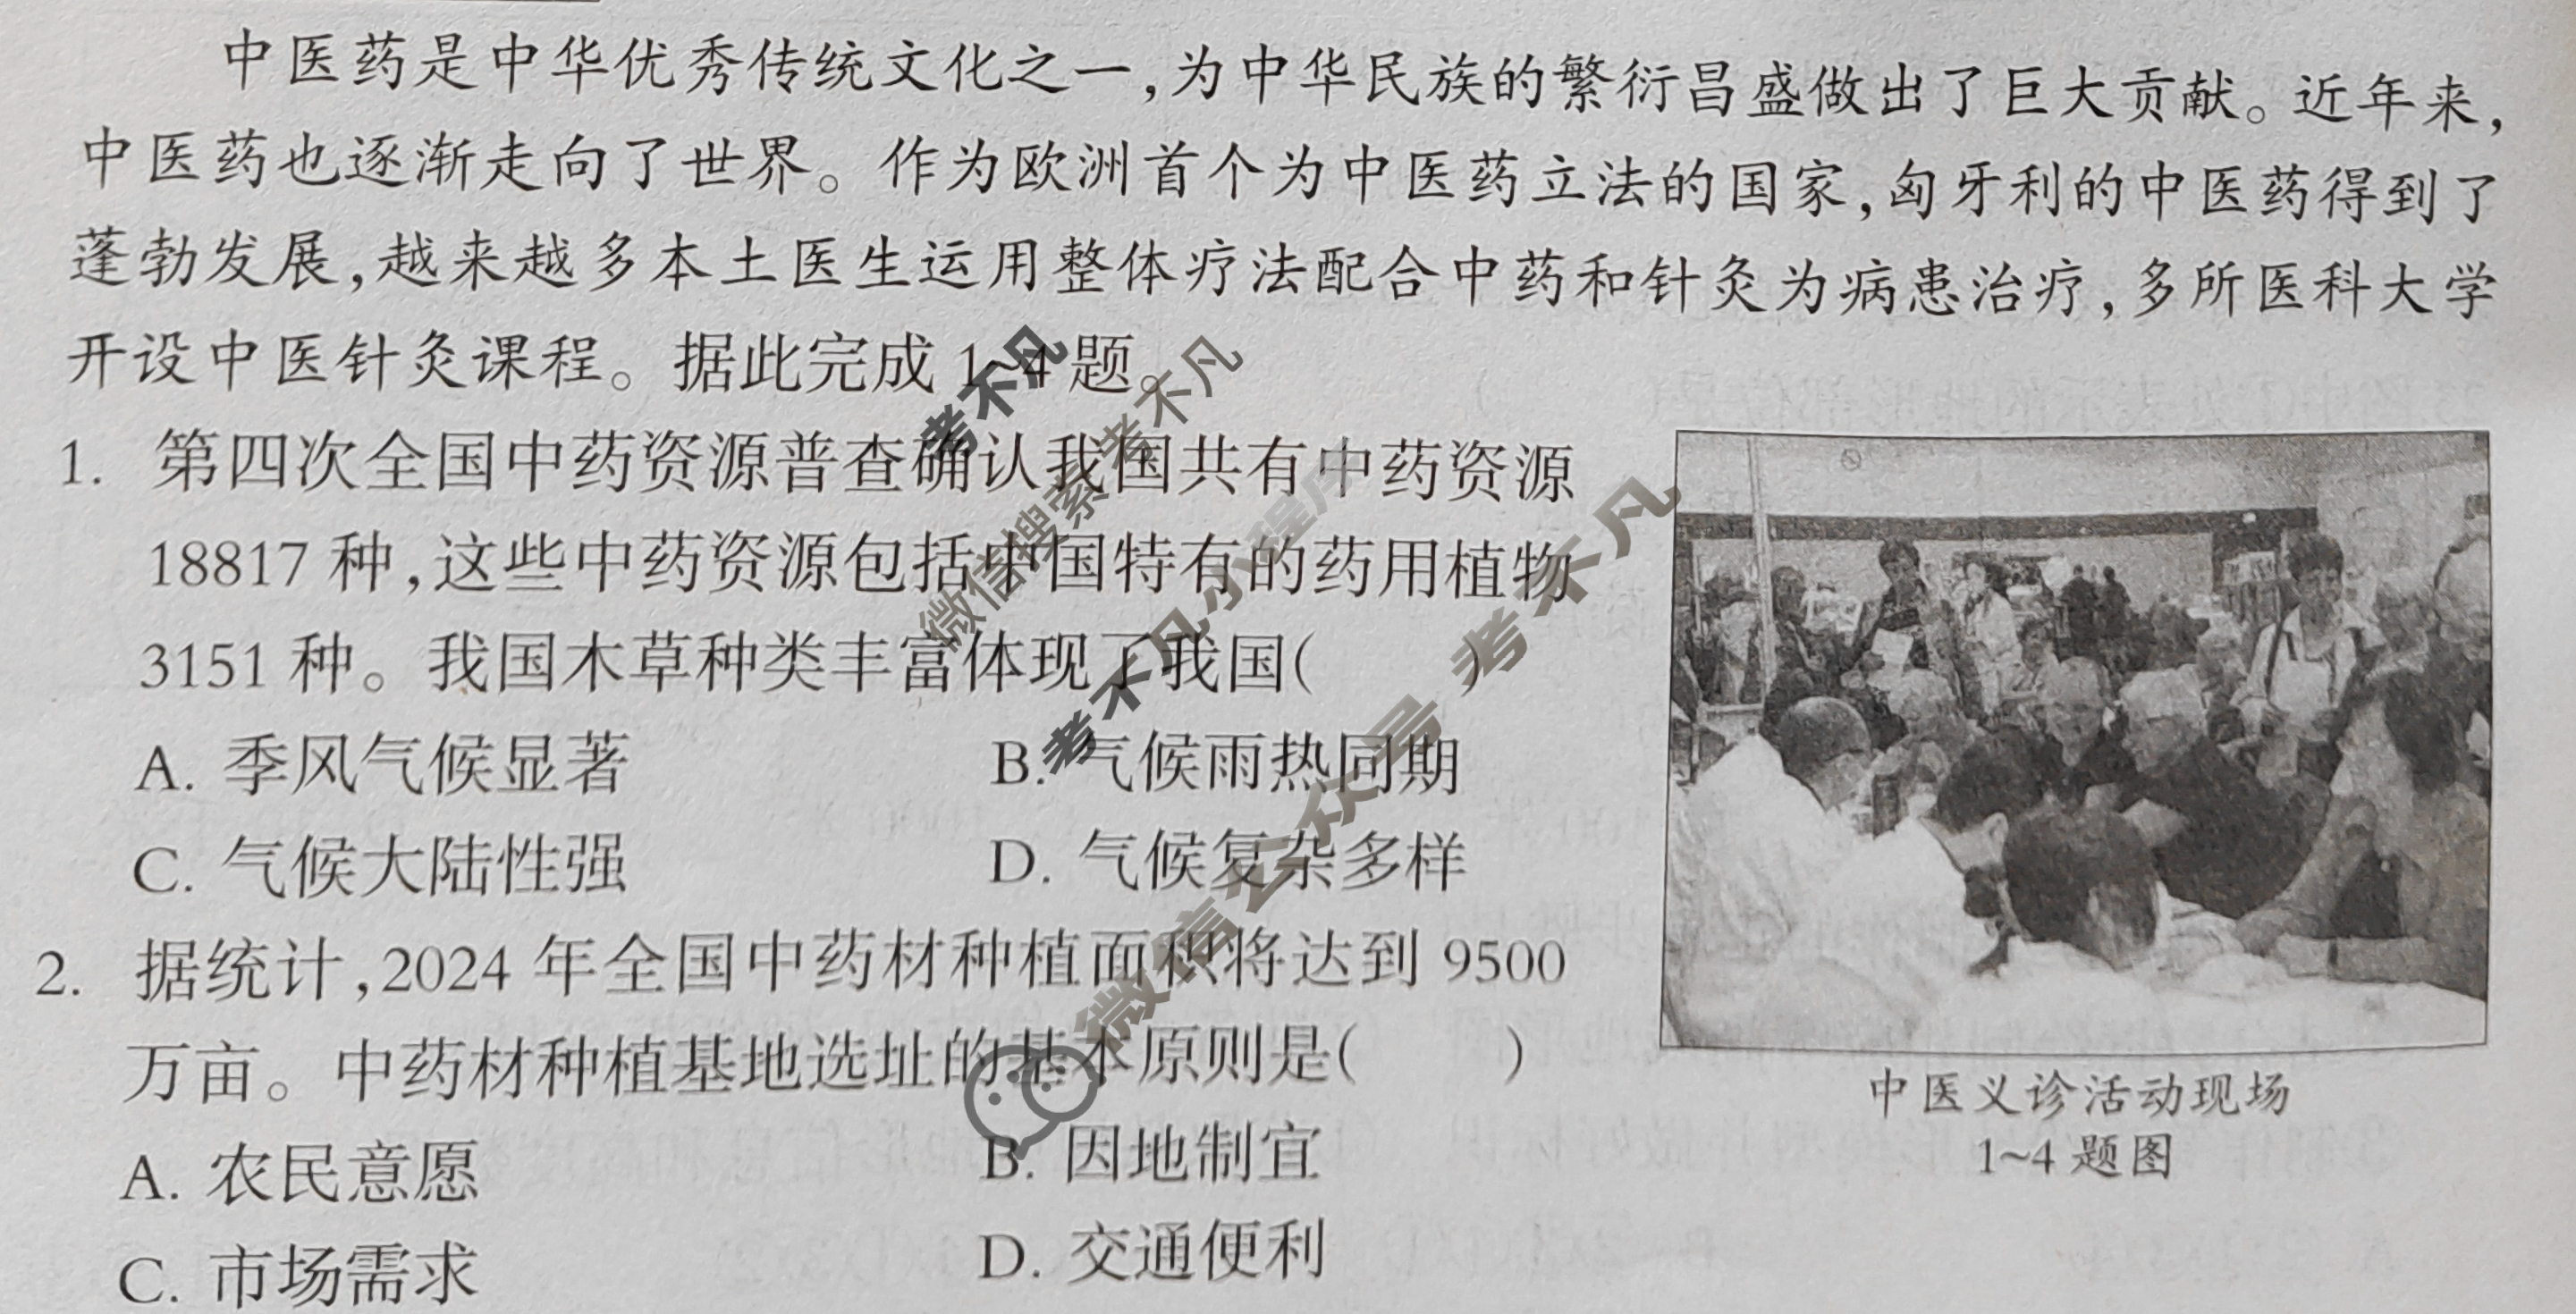 中医药是中华优秀传统文化之一,为中华民族的繁衍昌盛做出了巨大贡献。近年来,
中医药也逐渐走向了世界。作为欧洲首个为中医药立法的国家,匈牙利的中医药得到了
蓬勃发展,越来越多本土医生运用整体疗法配合中药和针灸为病患治疗,多所医科大学
开设中医针灸课程。据此完成1~4题。
1. 第四次全国中药资源普查确认我国共有中药资源
18817种,这些中药资源包括中国特有的药用植物
3151种。我国木草种类丰富体现了我国( )
A. 季风气候显著 B. 气候雨热同期
C. 气候大陆性强 D. 气候复杂多样
2. 据统计,2024年全国中药材种植面积将达到9500
万亩。中药材种植基地选址的基本原则是( )
A. 农民意愿 B. 因地制宜
C. 市场需求 D. 交通便利
中医义诊活动现场
1~4题图
考不凡
微信搜索 考不凡
考不凡小程序
微信公众号 考不凡